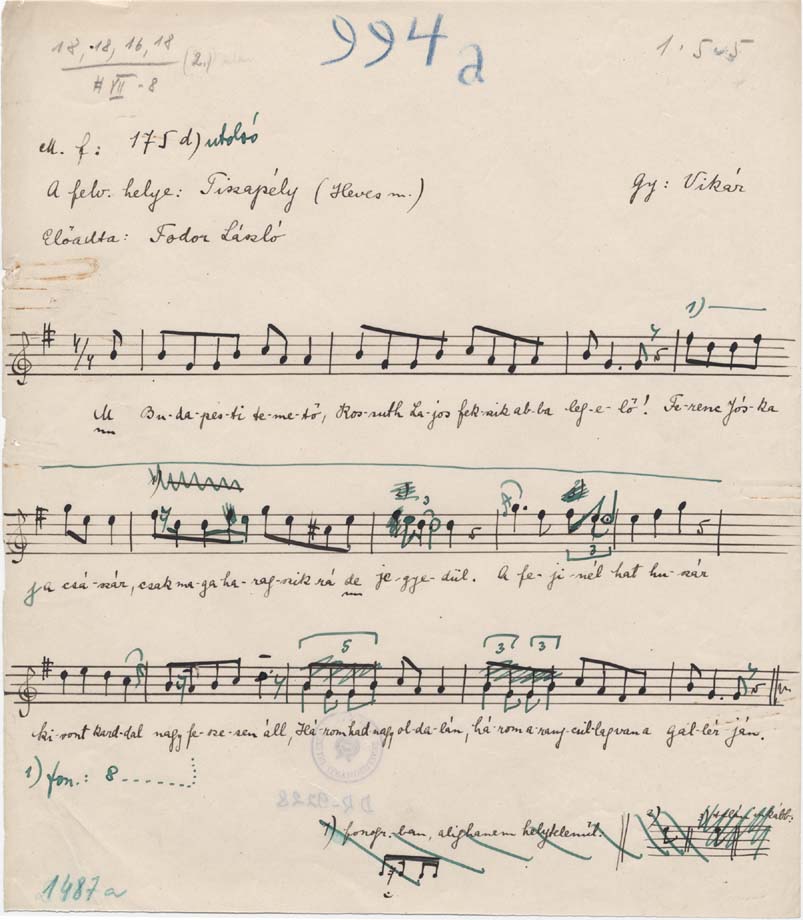 994a
18, 18, 16, 18 (2.)
# VII - 8
1 . 5 5
M. f: 175 d) utolsó
A felv. helye: Tiszapély (Heves m.)
Gy: Vikár
Előadta: Fodor László
1)
4/4
A Bu-da-pes-ti te-me-tő, Kos-suth La-jos fek-szik ab-ba leg-e-lő! Fe-renc Jós-ka
ja csá-szár, csak ma-ga ha-rag-szik rá de je-gye-dül. A fe-ji-nél hat hu-szár
3
3
5
3
3
ki-vont kard-dal nagy fe-sze-sen áll, Há-rom had-nagy ol-da-lán, há-rom a-rany csil-lag van a gal-lér-ján.
1) fon.: 8
DR-9228
1) fonogr.-ban, alighanem helytelenül:
2)
1487a